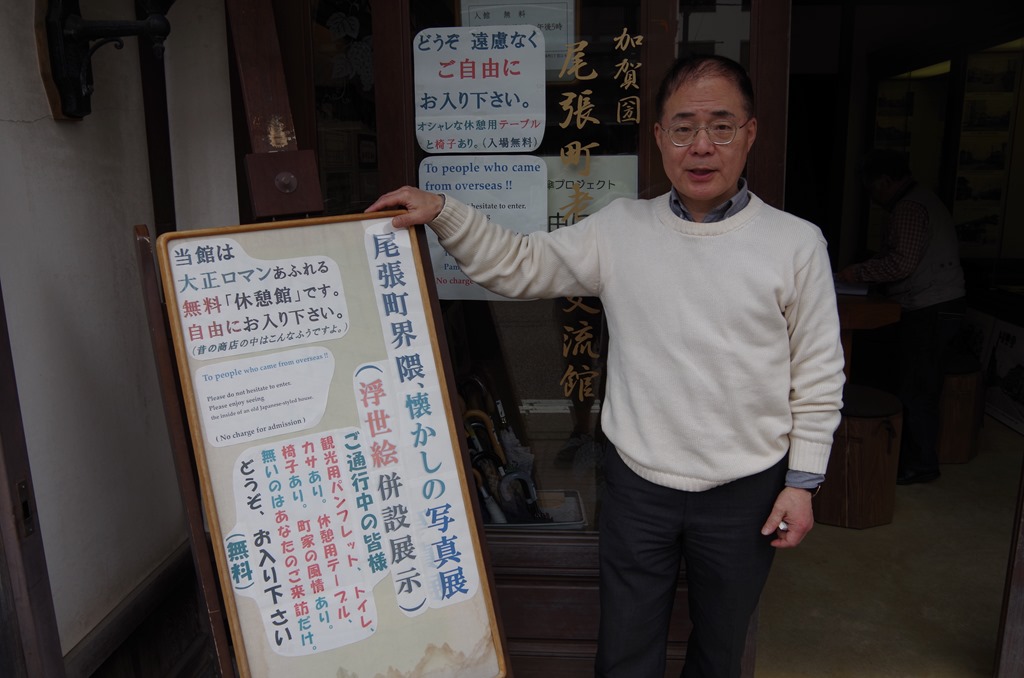 入館 無料
午後5時
どうぞ 遠慮なく
ご自由に
お入り下さい。
オシャレな休憩用テーブル
と椅子あり。(入場無料)
To people who came
from overseas !!
hesitate to enter.
No charge
プロジェクト
加賀国
尾張町
交流館
当館は
大正ロマンあふれる
無料「休憩館」です。
自由にお入り下さい。
(昔の商店の中はこんなふうですよ。)
To people who came from overseas !!
Please do not hesitate to enter.
Please enjoy seeing
the inside of an old Japanese-styled house.
( No charge for admission )
尾張町界隈、懐かしの写真展
(浮世絵併設展示)
ご通行中の皆様
観光用パンフレット、トイレ、
カサあり。休憩用テーブル、
椅子あり。町家の風情あり。
無いのはあなたのご来訪だけ。
どうぞ、お入り下さい
(無料)